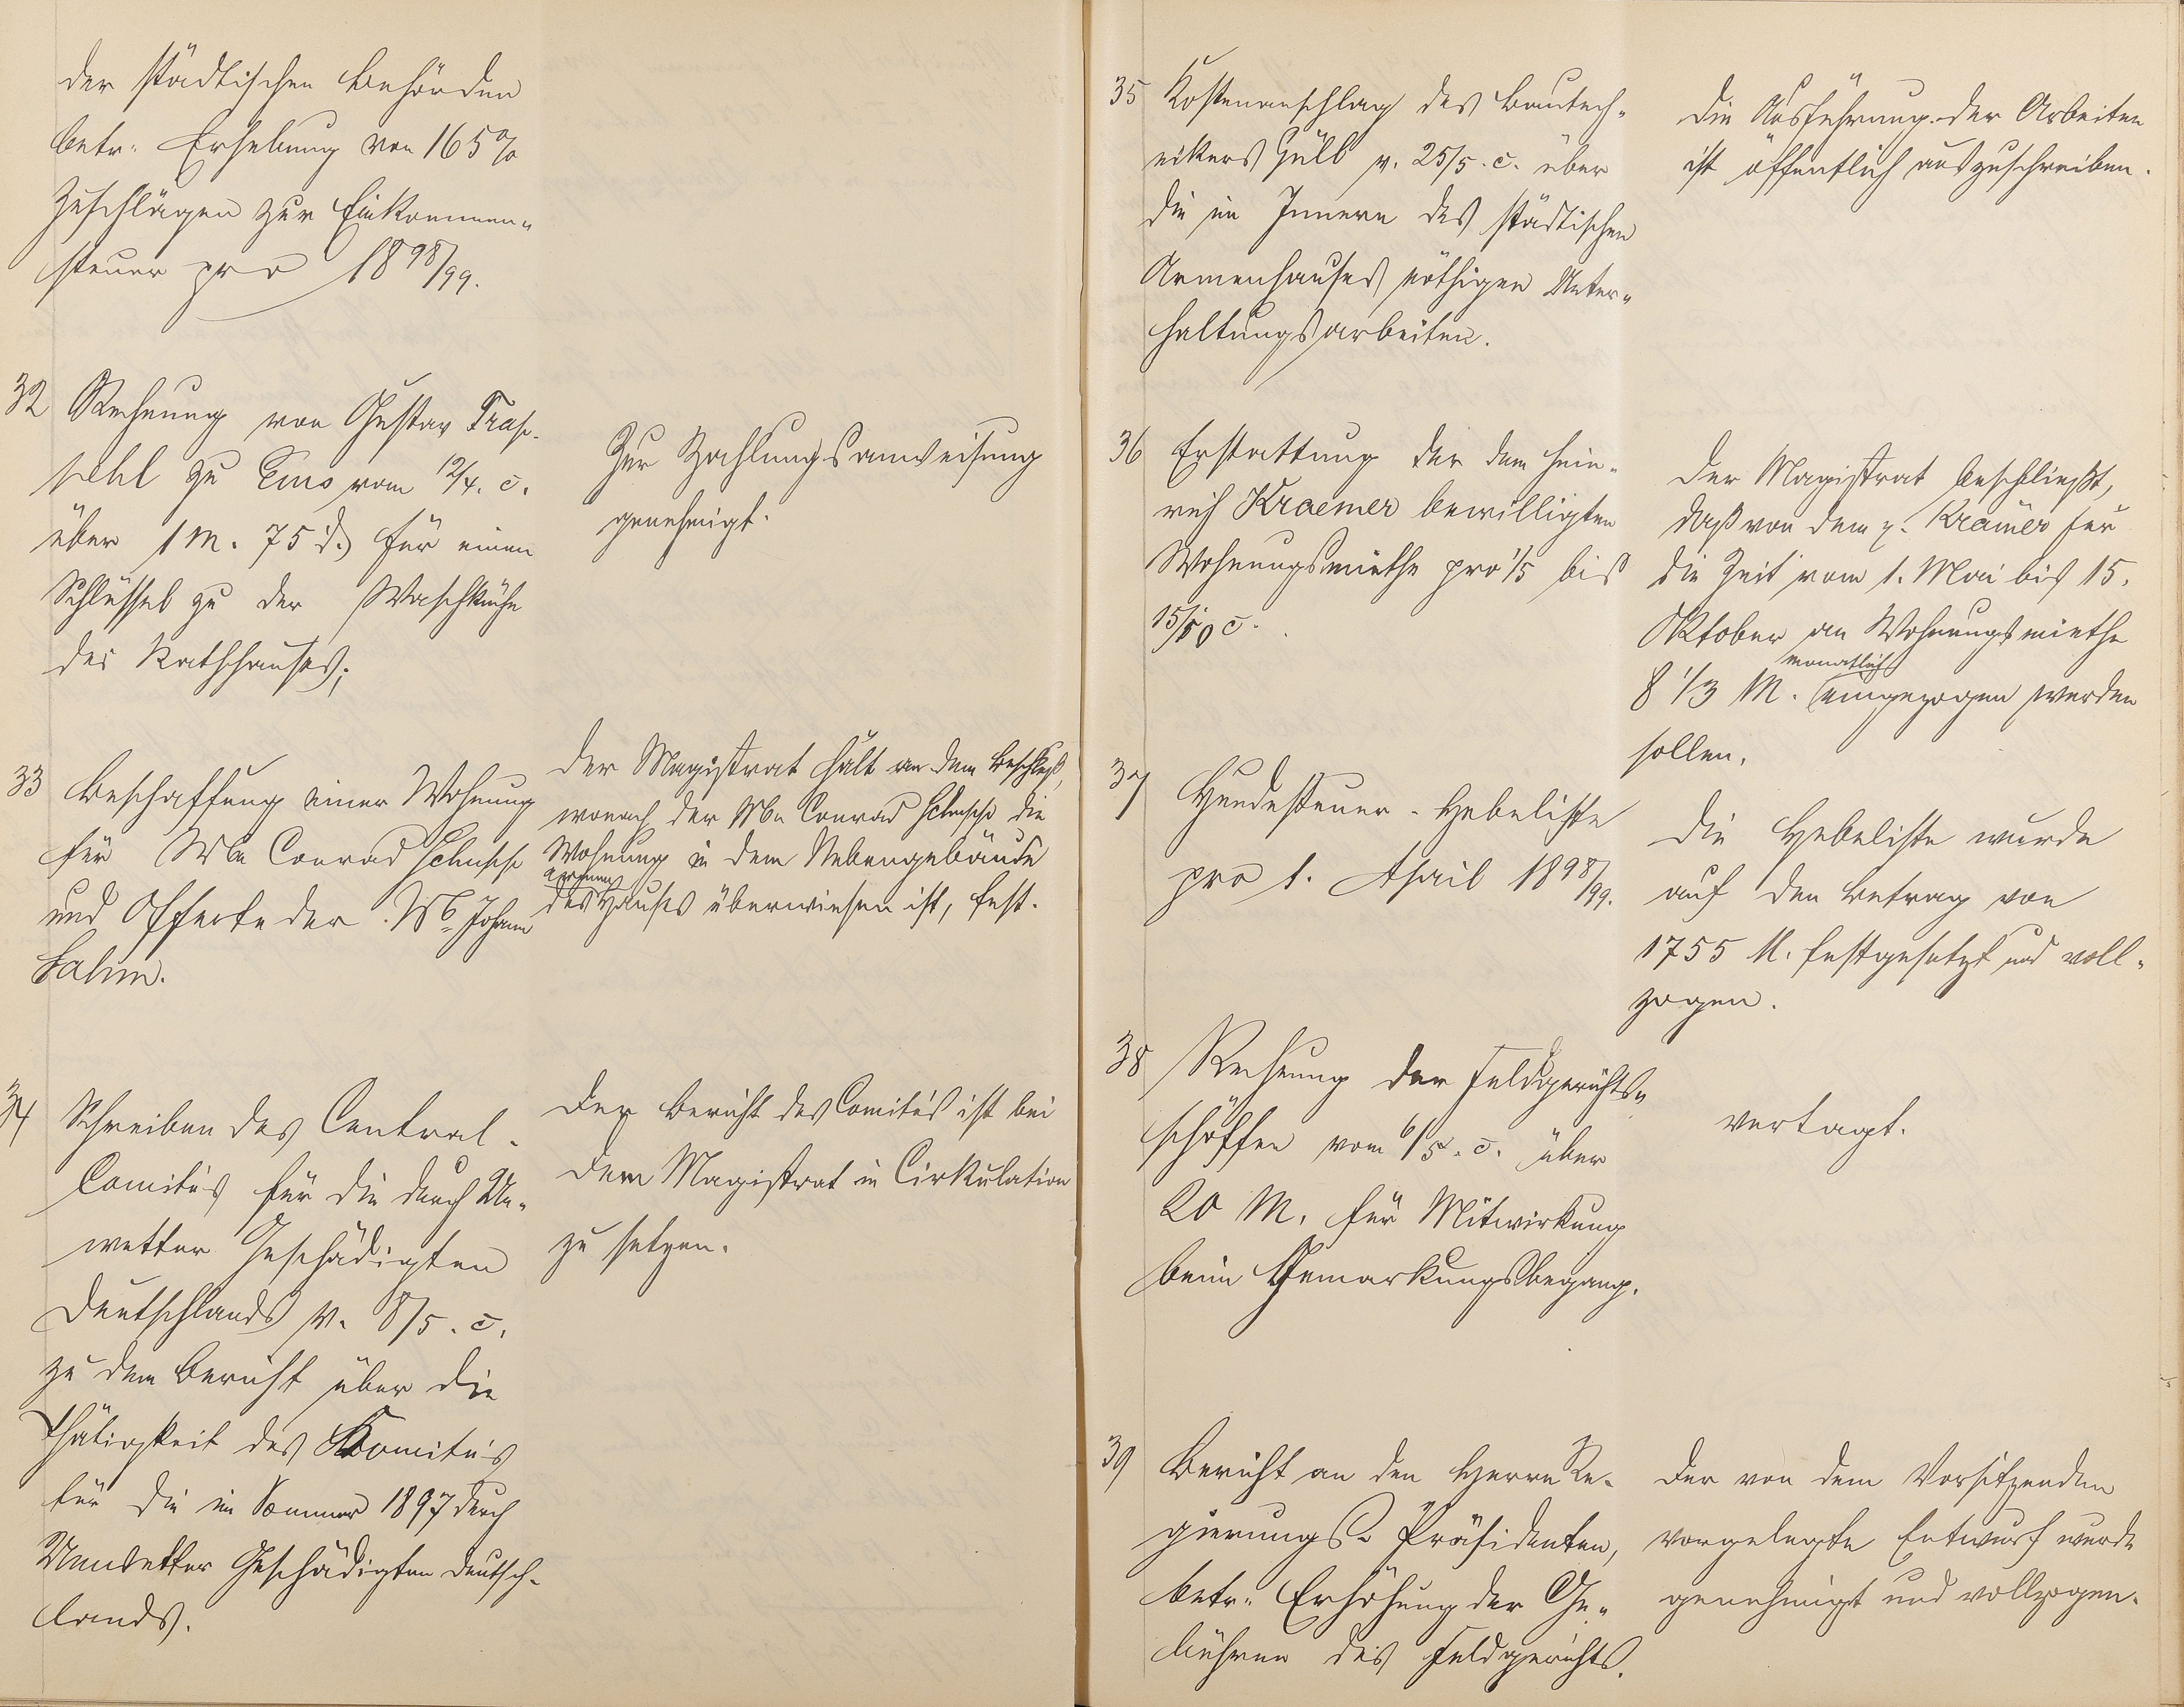 der städtischen Behörden
betr. Erhebung von 165%
Zuschlägen zur Einkommen-
steuer pro 1898/99.
32 Rechnung von Gustav
zu Ems vom 12/4. c.
über 1 M. 75 d. für einen
Schlüssel zu der Waschküche
des Rathhauses;
Zur Zahlungsanweisung
genehmigt.
33 Beschaffung einer Wohnung
für Wwe Conrad
und Offerte der Wwe Johann
Sahm.
Der Magistrat hält an dem Beschluß,
wonach der Wwe Conrad die
Wohnung in dem Nebengebäude
des Armenhauses überwiesen ist, fest.
34 Schreiben des Central-
Comités für die durch Un-
wetter Geschädigten
Deutschlands v. 8/5. c.
zu dem Bericht über die
Thätigkeit des Komités
für die im Sommer 1897 durch
Unwetter Geschädigten Deutsch-
lands.
Der Bericht des Comités ist bei
dem Magistrat in Cirkulation
zu setzen.
35 Kostenanschlag des Bautech-
nikers Güll v. 25/5. c. über
die im Innern des städtischen
Armenhauses nöthigen Unter-
haltungsarbeiten.
Die Ausführung der Arbeiten
ist öffentlich auszuschreiben.
36 Erstattung der dem Hein-
rich Kraemer bewilligten
Wohnungsmiethe pro 1/5 bis
15/10 c.
Der Magistrat beschließt,
daß von dem p. Kramer für
die Zeit vom 1. Mai bis 15.
Oktober an Wohnungsmiethe
8 1/3 M. monatlich eingezogen werden
sollen.
37 Hundesteuer-Hebeliste
pro 1. April 1898/99.
Die Hebeliste wurde
auf den Betrag von
1755 M. festgesetzt und voll-
zogen.
38 Rechnung der Feldgerichts-
schöffen vom 6/5. c. über
20 M. für Mitwirkung
beim Gemarkungsbegang.
Vertagt.
39 Bericht an den Herrn Re-
gierungs-Präsidenten,
betr. Erhöhung der Ge-
bühren des Feldgerichts.
Der von dem Vorsitzenden
vorgelegte Entwurf wurde
genehmigt und vollzogen.